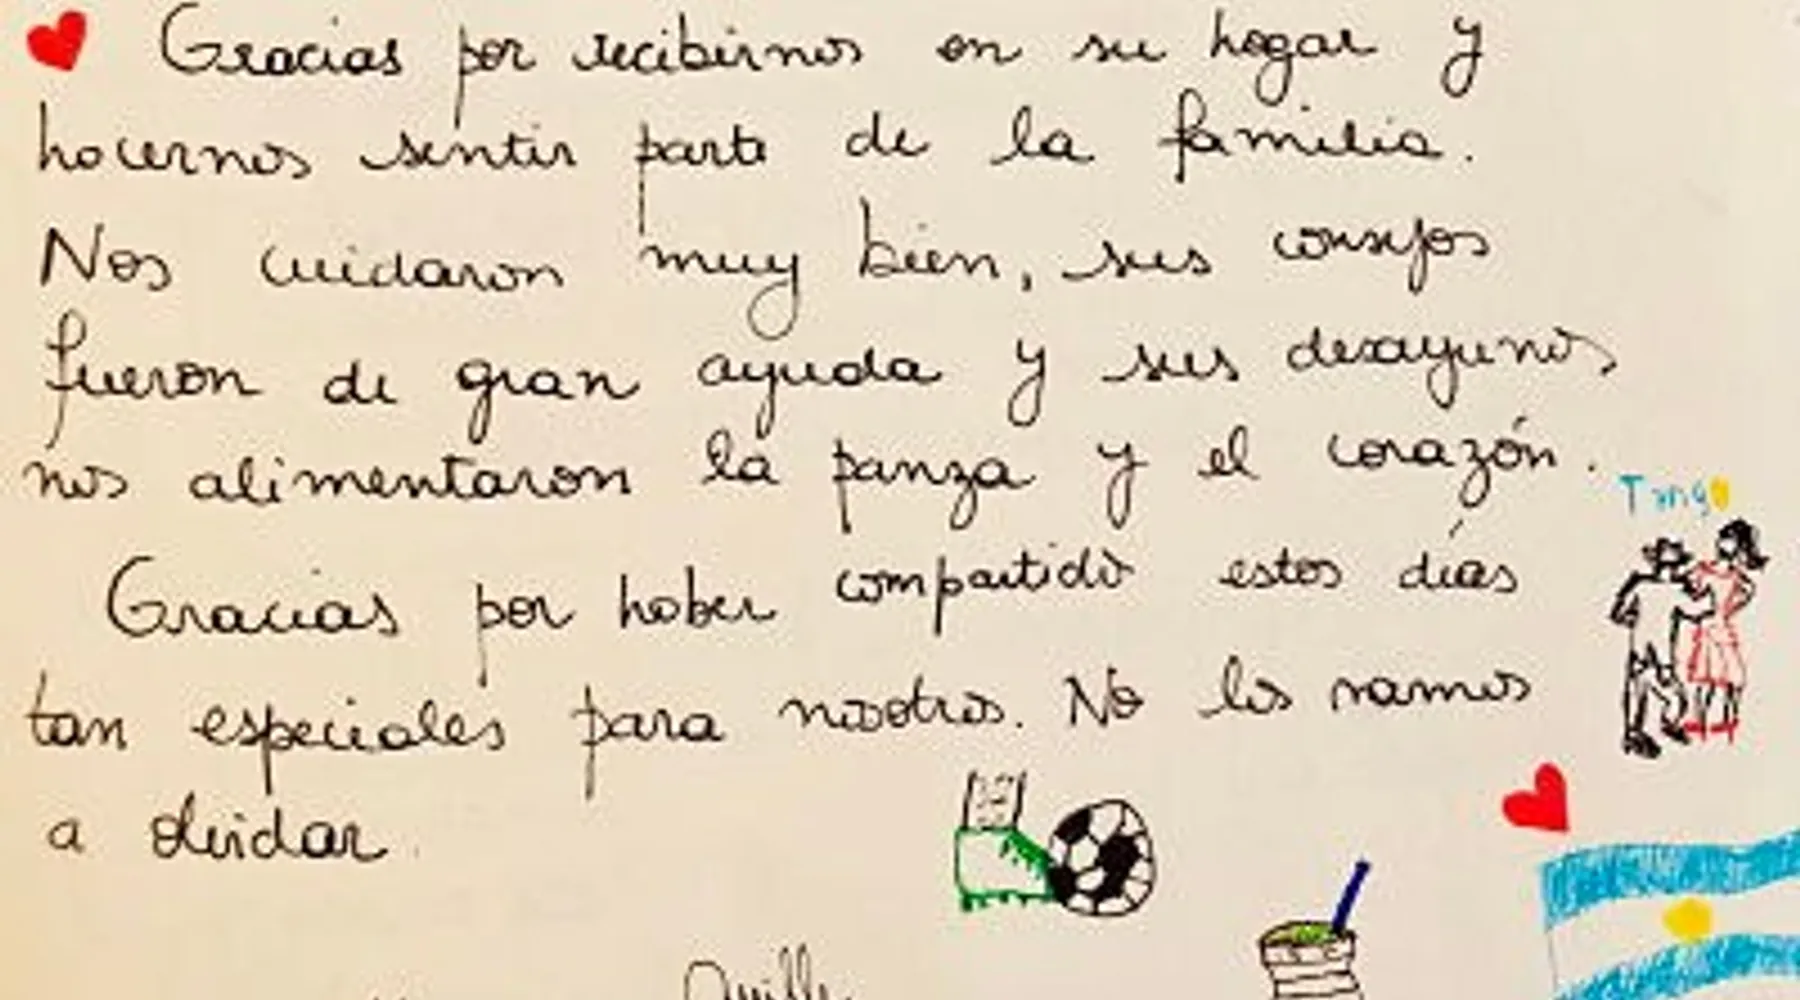 Gracias por recibirnos en su hogar y
hacernos sentir parte de la familia.
Nos cuidaron muy bien, sus consejos
fueron de gran ayuda y sus desayunos
nos alimentaron la panza y el corazón.
Tango
Gracias por haber compartido estos días
tan especiales para nosotros. No los vamos
a olvidar.